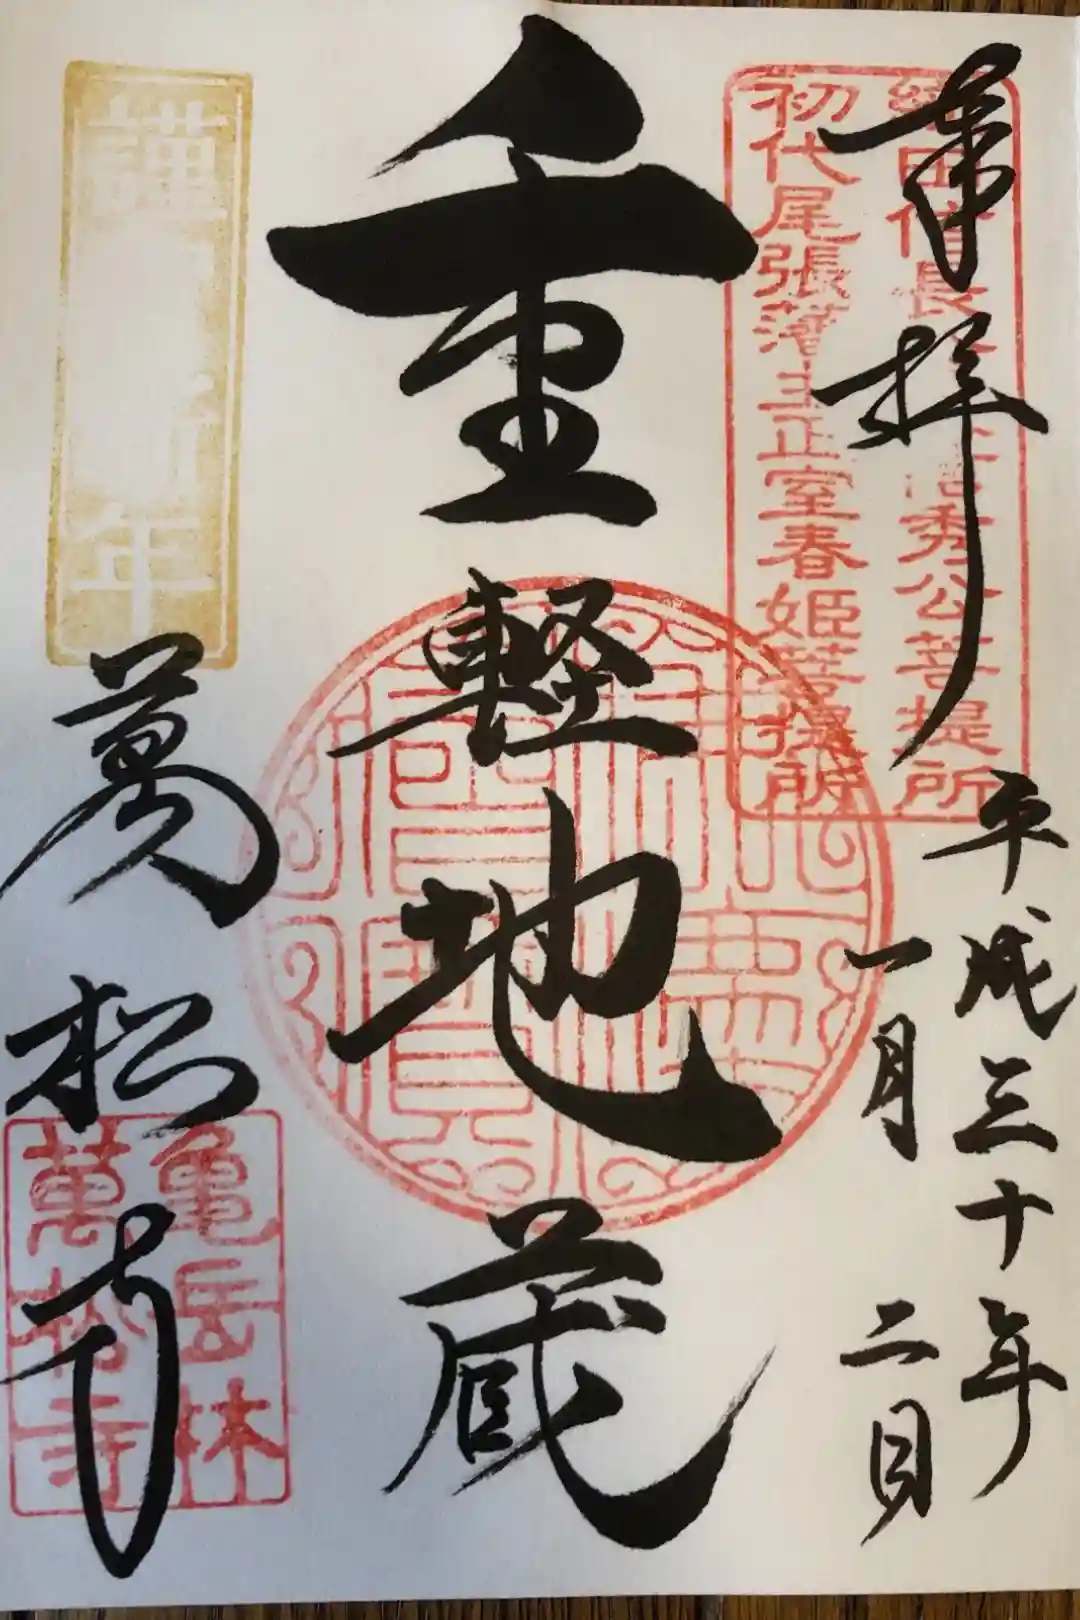 奉拝
平成三十年
一月二日
織田信長公父信秀公菩提所
初代尾張藩主正室春姫菩提所
重軽地蔵
謹賀新年
萬松寺
亀岳林
萬松寺